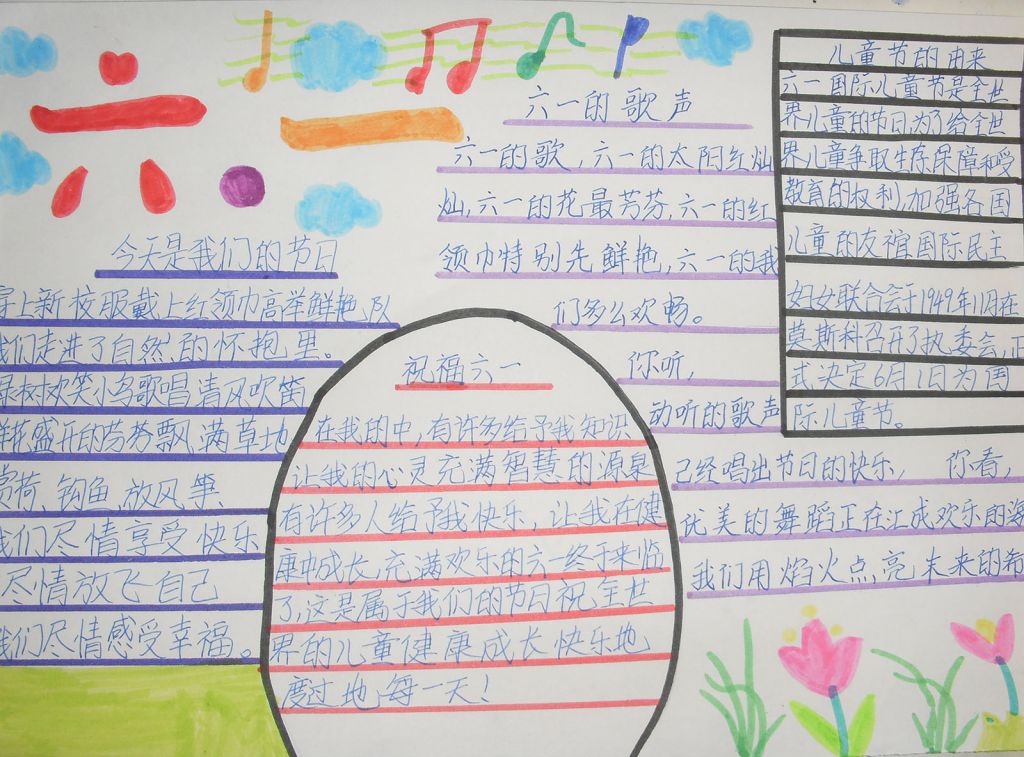 六一
六一的歌声
六一的歌,六一的太阳红灿
灿,六一的花最芳芬,六一的红
领巾特别先鲜艳,六一的我
们多么欢畅。
你听,
动听的歌声
已经唱出节日的快乐, 你看,
优美的舞蹈正在汇成欢乐的海
我们用焰火点亮未来的希
儿童节的由来
六一国际儿童节是全世
界儿童的节日,为了给全世
界儿童争取生存保障和受
教育的权利,加强各国
儿童的友谊国际民主
妇女联合会于1949年11月在
莫斯科召开了执委会,正
式决定6月1日为国
际儿童节。
今天是我们的节日
穿上新校服戴上红领巾高举鲜艳队
我们走进了自然的怀抱里。
绿树欢笑小鸟歌唱清风吹笛
鲜花盛开的芳芬飘满草地
赏荷,钩鱼,放风筝
我们尽情享受快乐
尽情放飞自己
我们尽情感受幸福。
祝福六一
在我的中,有许多给予我知识
让我的心灵充满智慧的源泉
有许多人给予我快乐,让我在健
康中成长,充满欢乐的六一终于来临
了,这是属于我们的节日祝全世
界的儿童健康成长快乐地
度过地每一天!